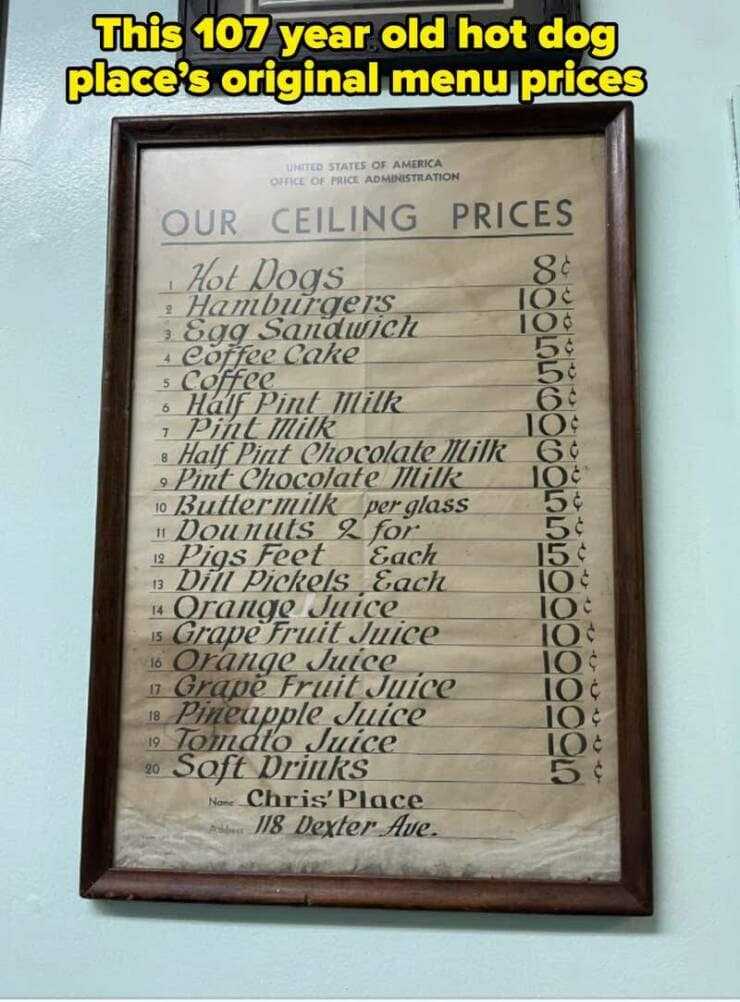 This 107 year old hot dog
place's original menu prices
UNITED STATES OF AMERICA
OFFICE OF PRICE ADMINISTRATION
OUR CEILING PRICES
1 Hot Dogs 8¢
2 Hamburgers 10¢
3 Egg Sandwich 10¢
4 Coffee Cake 5¢
5 Coffee 5¢
6 Half Pint Milk 6¢
7 Pint Milk 10¢
8 Half Pint Chocolate Milk 6¢
9 Pint Chocolate Milk 10¢
10 Buttermilk per glass 5¢
11 Dounuts 2 for 5¢
12 Pigs Feet Each 15¢
13 Dill Pickels Each 10¢
14 Orange Juice 10¢
15 Grape Fruit Juice 10¢
16 Orange Juice 10¢
17 Grape Fruit Juice 10¢
18 Pineapple Juice 10¢
19 Tomato Juice 10¢
20 Soft Drinks 5¢
Name Chris' Place
Address 118 Dexter Ave.